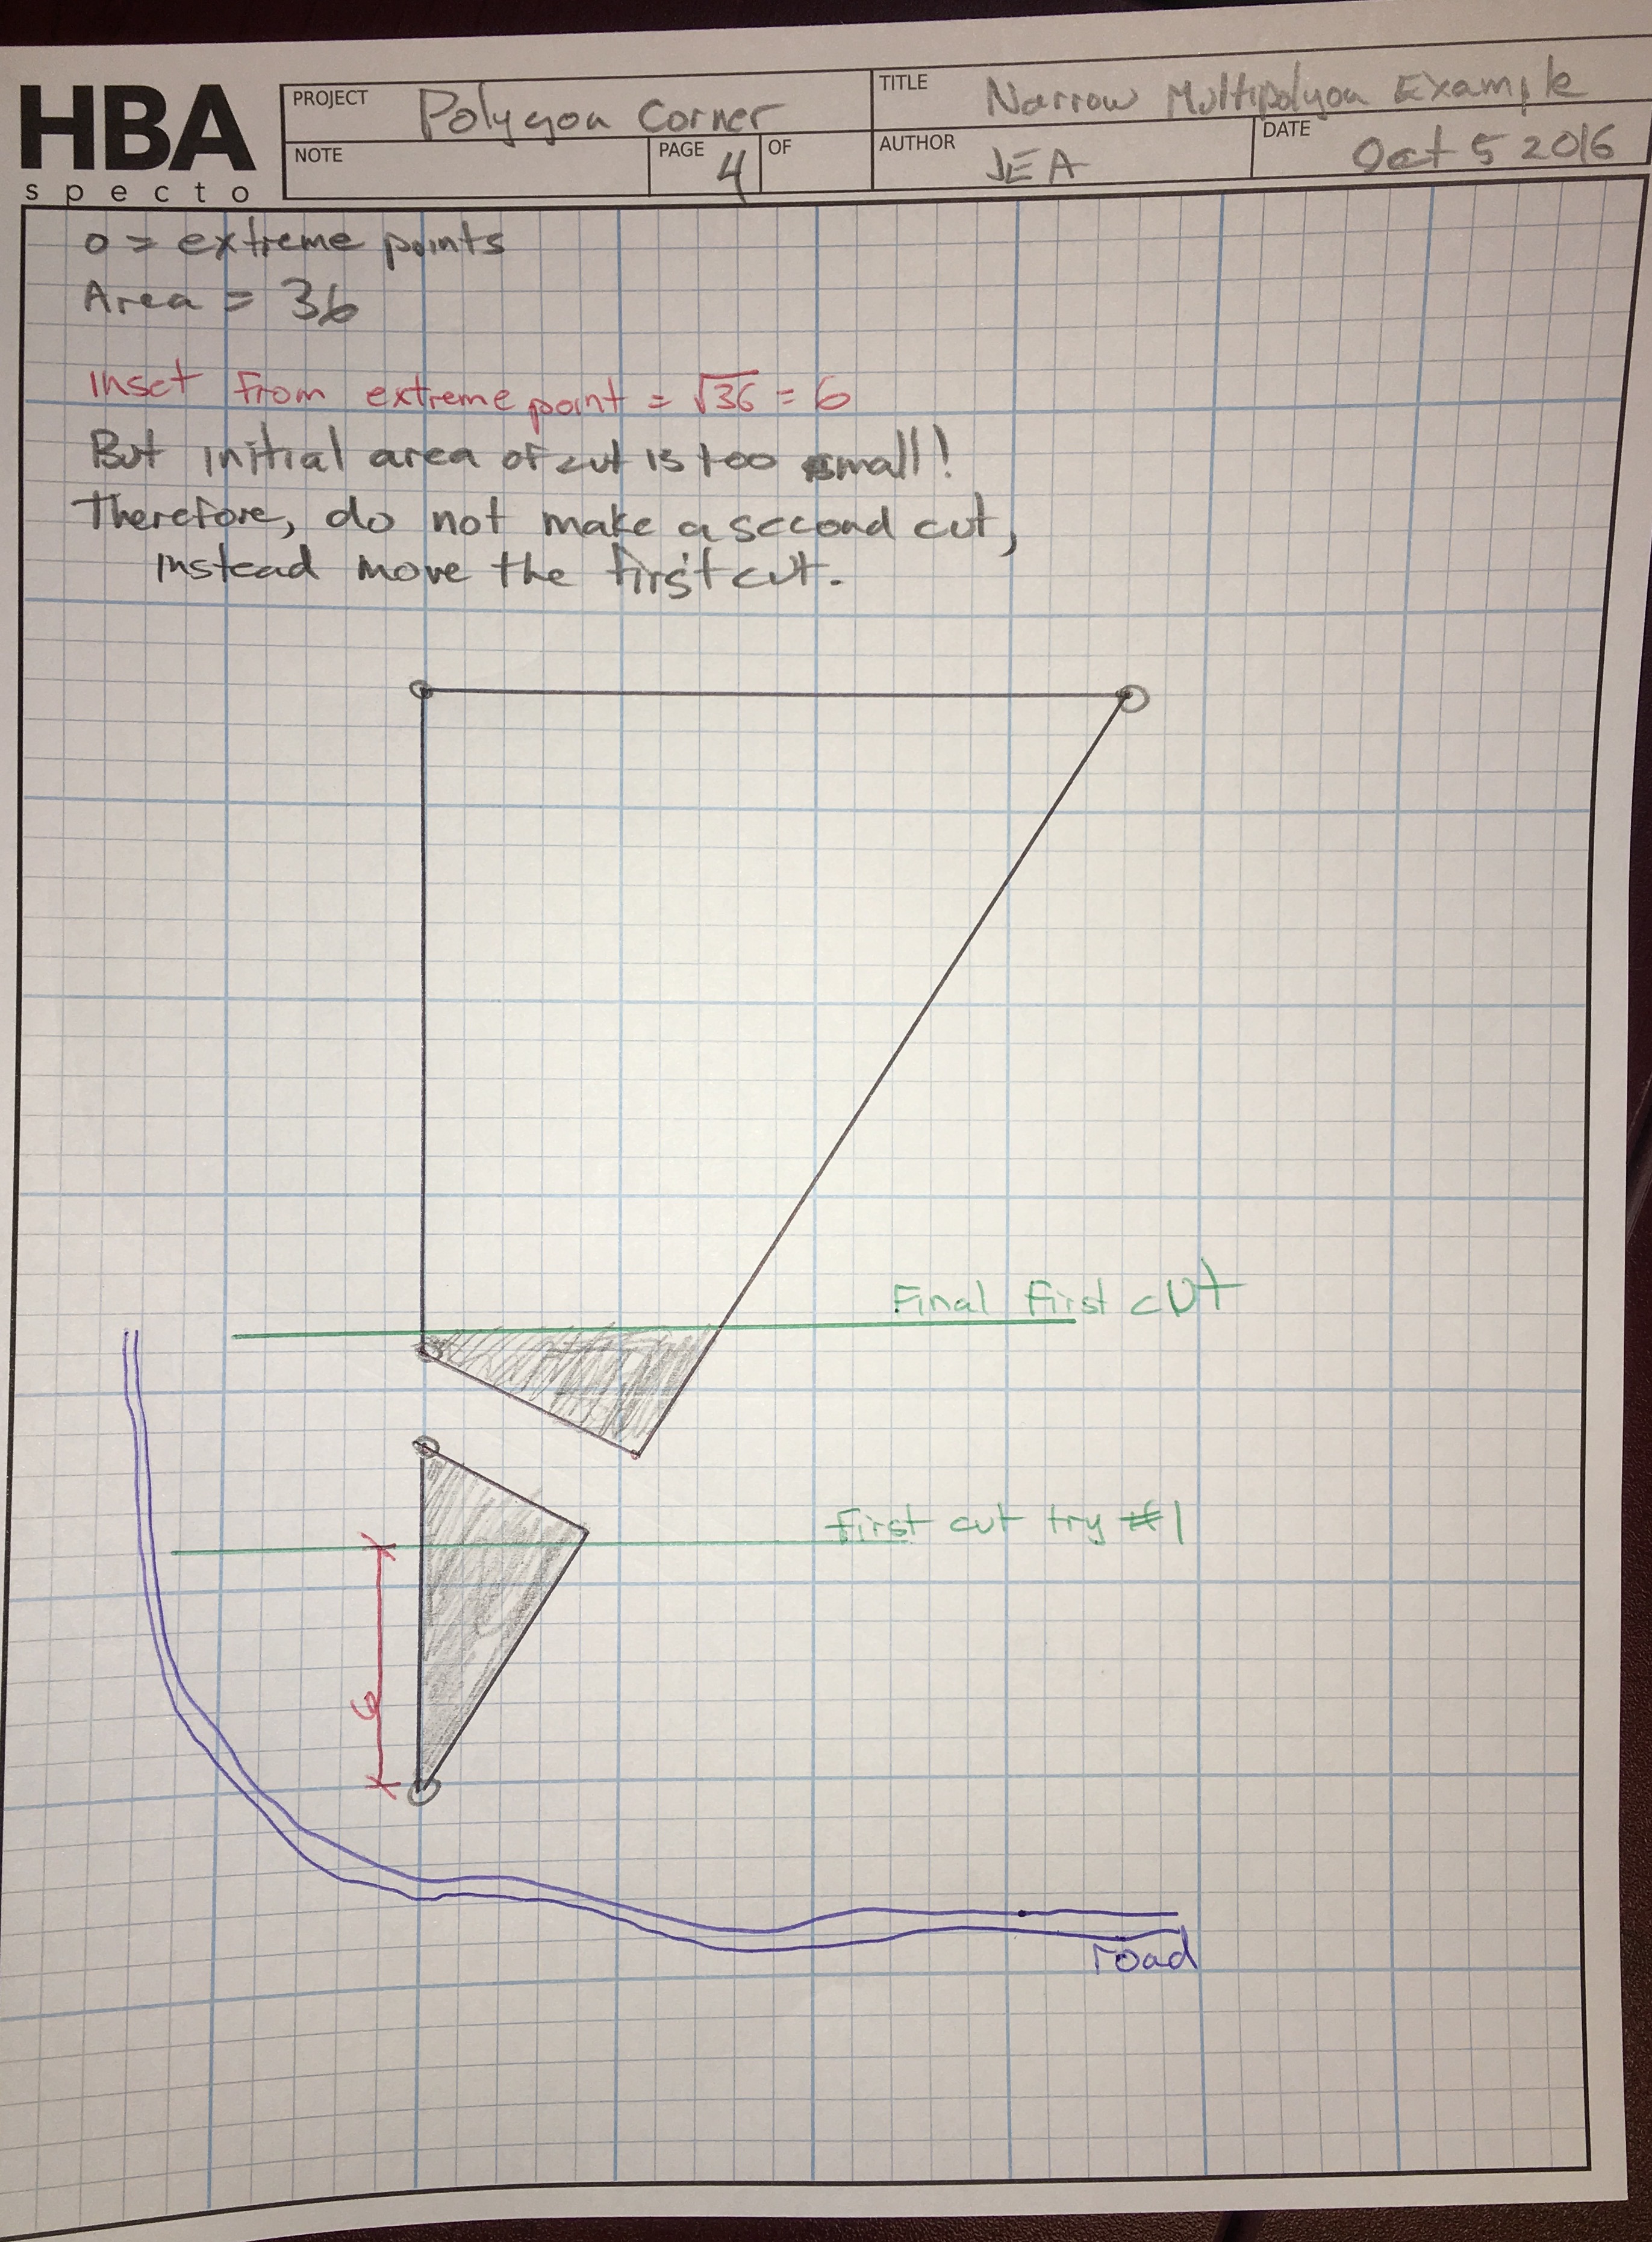 HBA
specto
PROJECT Polygon Corner
TITLE Narrow Multipolygon Example
NOTE
PAGE 4 OF
AUTHOR JEA
DATE Oct 5 2016
o = extreme points
Area = 36
Inset from extreme point = √36 = 6
But initial area of cut is too small!
Therefore, do not make a second cut,
instead move the first cut.
Final first cut
first cut try #1
6
road